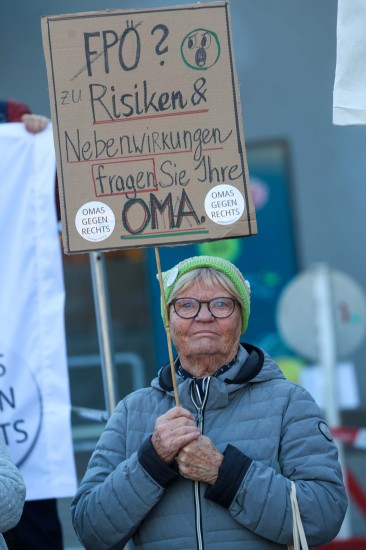 FPÖ?
zu Risiken &
Nebenwirkungen
fragen Sie Ihre
OMA.
OMAS
GEGEN
RECHTS
OMAS
GEGEN
RECHTS